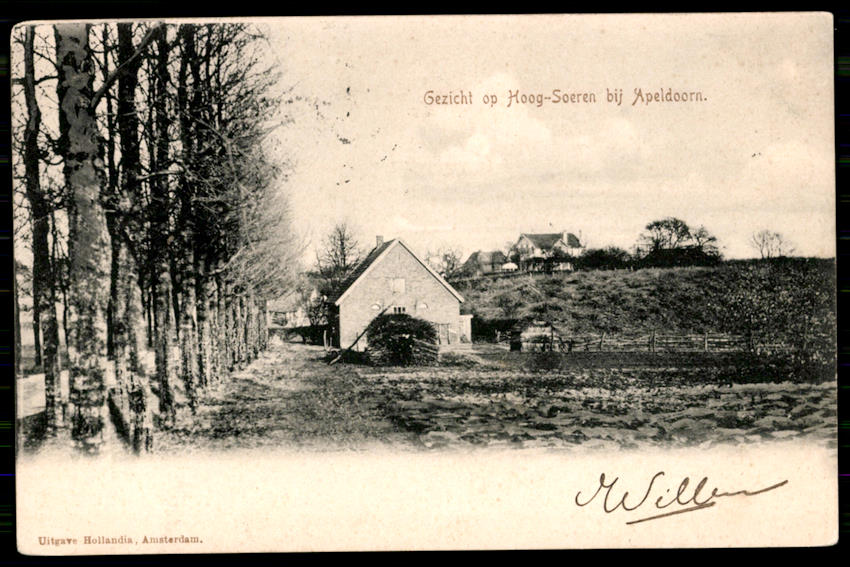 Gezicht op Hoog-Soeren bij Apeldoorn.
Uitgave Hollandia, Amsterdam.